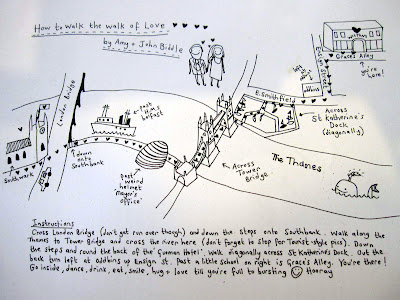 How to walk the walk of Love
by Amy + John Biddle
WILTONS
Graces Alley
you're here!
Ensign Street
left at
addbins
E. Smithfield
London bridge
past H.M.S. belfast
Across
St Katherine's
Dock
(diagonally)
Southwark
down
onto
Southbank
past
weird
helmet
mayor's
office
Across
Tower
Bridge
The Thames
Instructions
Cross London Bridge (don't get run over though) and down the steps onto Southbank. Walk along the
Thames to Tower Bridge and cross the river here (don't forget to stop for Tourist-style pics). Down
the steps and round the back of the 'Guoman Hotel', walk diagonally across St Katherine's Dock. Out the
back turn left at addbins up Ensign St. Past a little school on right is Graces Alley. You're there!
Go inside, dance, drink, eat, smile, hug + love till you're full to bursting Hooray